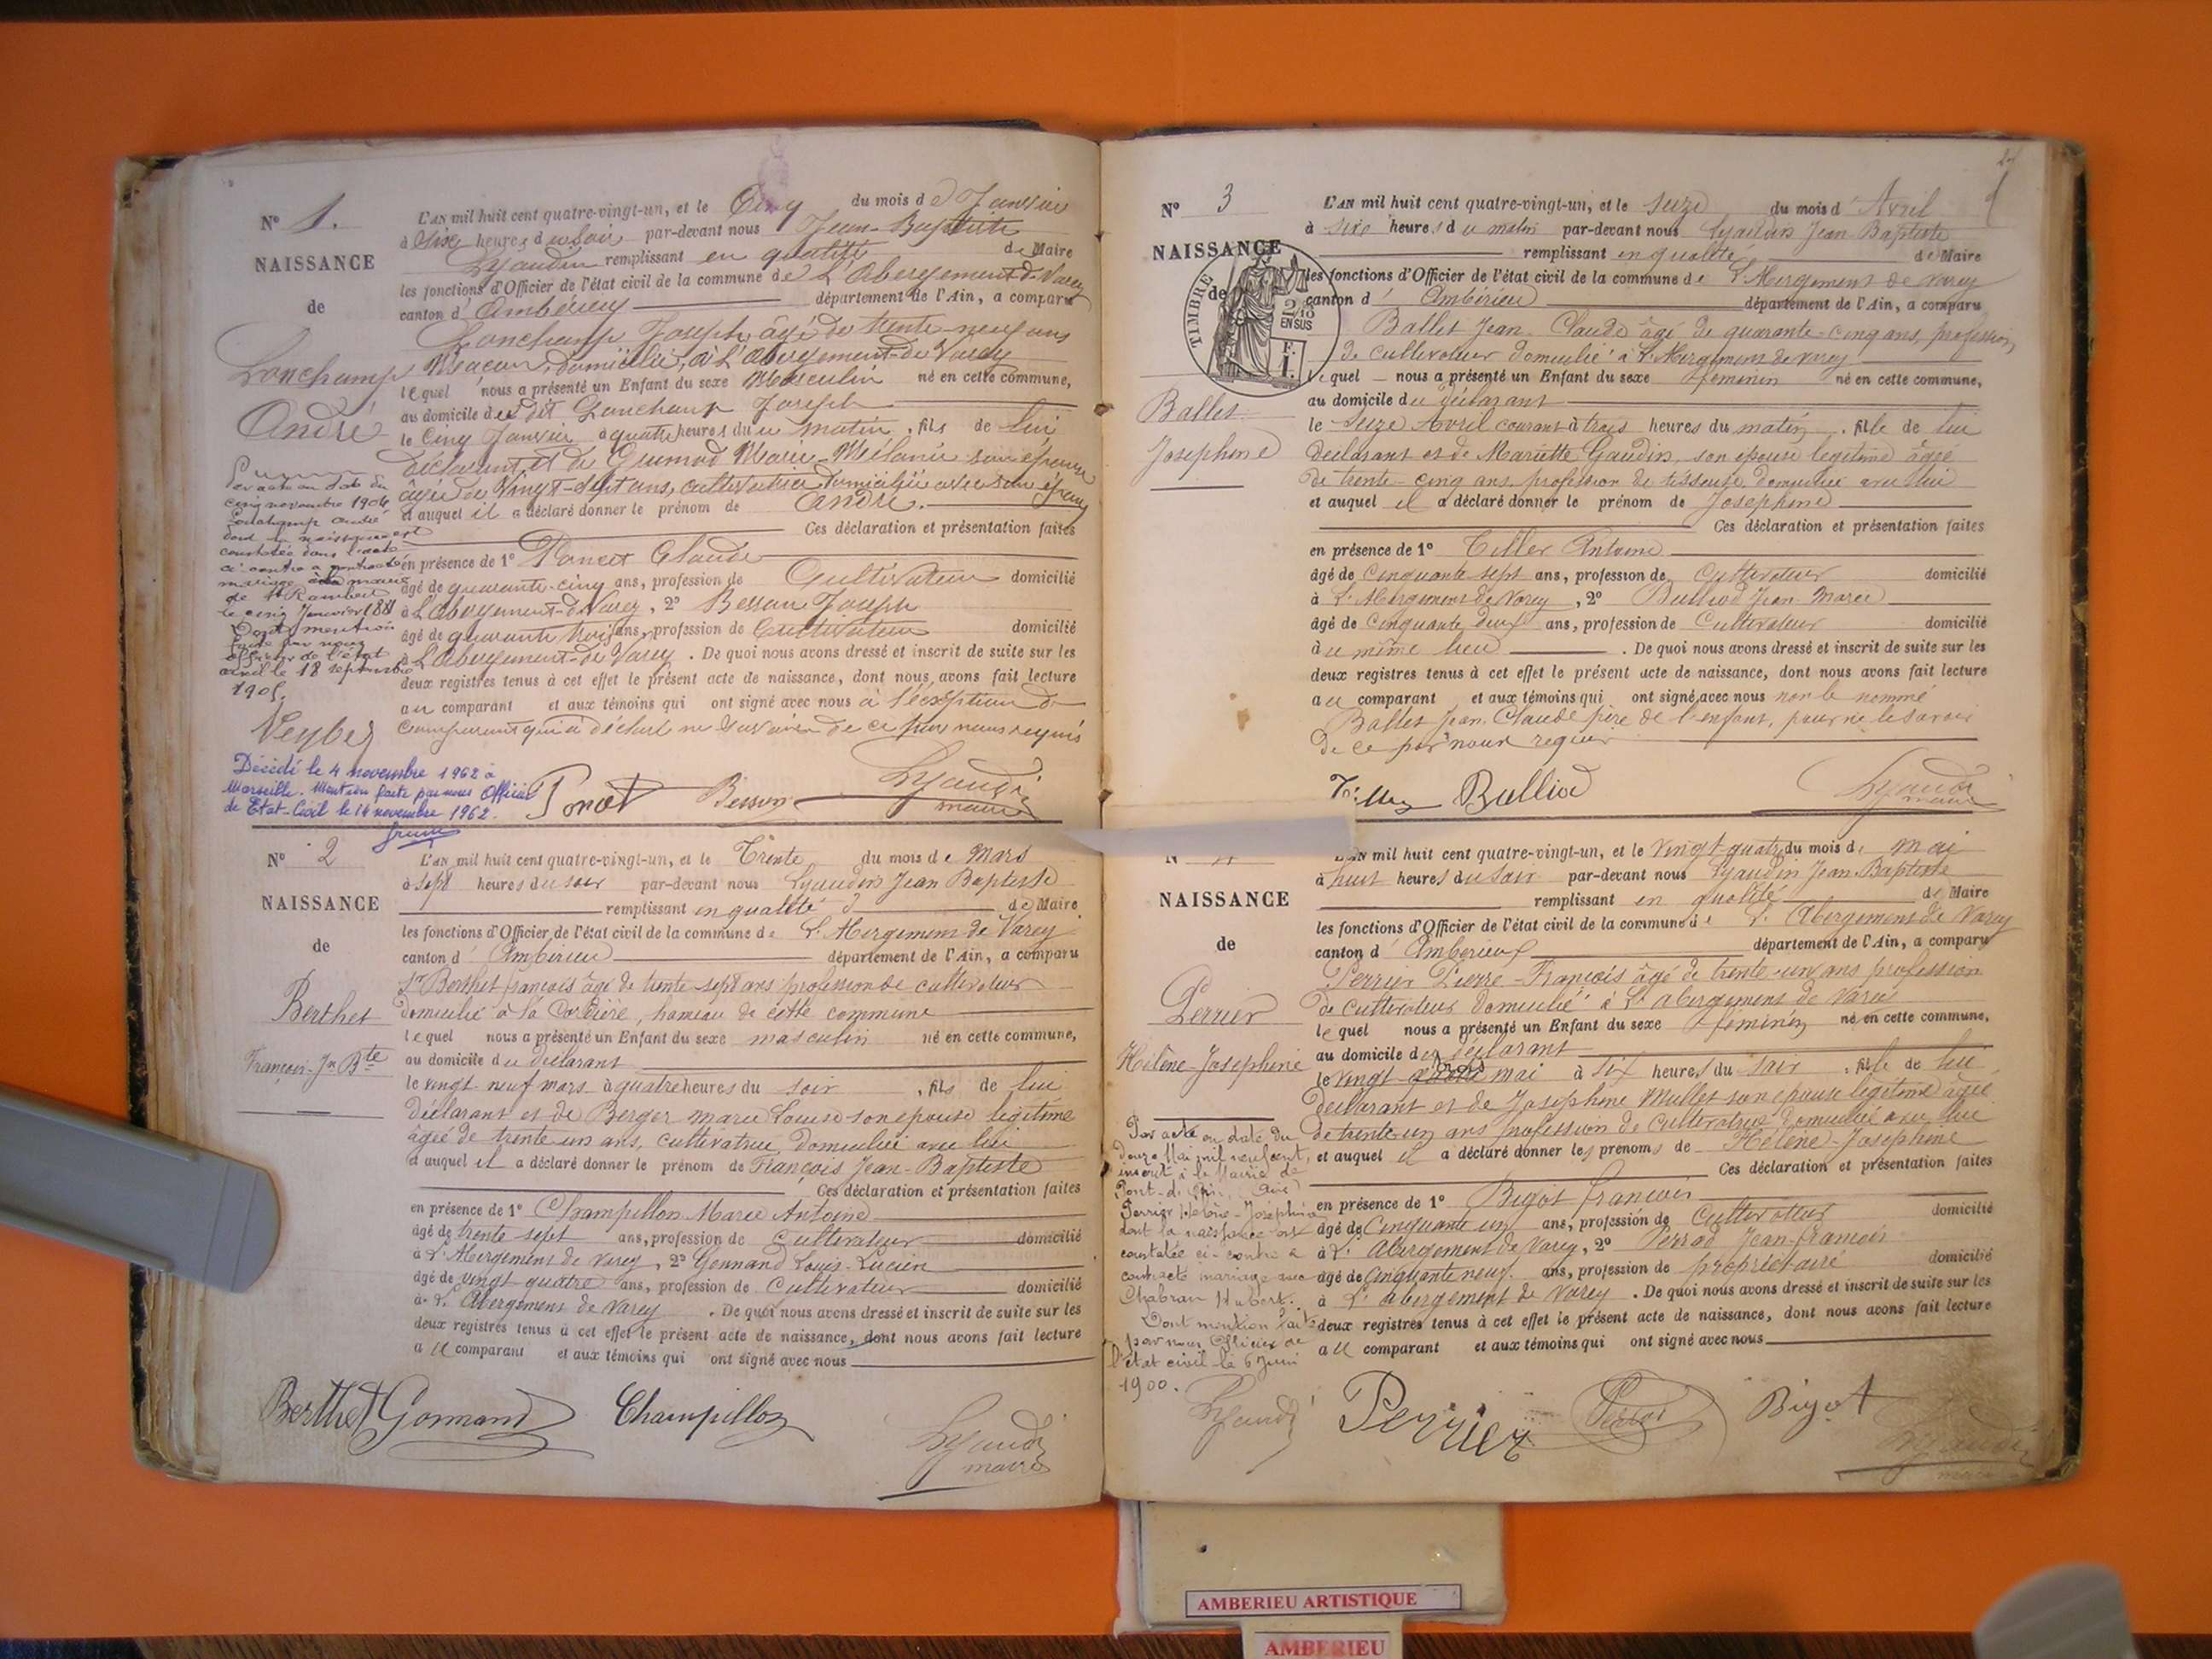 N° 1.
NAISSANCE
de
Lonchamp
André
L'AN mil huit cent quatre-vingt-un, et le Cinq du mois de Janvier
à Six heures du soir par-devant nous Jean-Baptiste
Lyaudin remplissant en qualité de Maire
les fonctions d'Officier de l'état civil de la commune de L'Abergement-de-Varey
canton d'Ambérieu département de l'Ain, a comparu
Lonchamp Joseph, âgé de trente-neuf ans
Maçon, domicilié, à L'Abergement-de-Varey
lequel nous a présenté un Enfant du sexe Masculin né en cette commune,
au domicile du dit Lonchamp Joseph
le Cinq Janvier à quatre heures du matin, fils de lui
déclarant et de Marie-Mélanie son épouse
âgée de Vingt-sept ans, cultivatrice domiciliée avec son époux
et auquel il a déclaré donner le prénom de André.
Ces déclaration et présentation faites
en présence de 1° Poncet Claude
âgé de quarante-cinq ans, profession de Cultivateur domicilié
à L'Abergement-de-Varey, 2° Besson Joseph
âgé de quarante trois ans, profession de Cultivateur domicilié
à L'Abergement-de-Varey. De quoi nous avons dressé et inscrit de suite sur les
deux registres tenus à cet effet le présent acte de naissance, dont nous avons fait lecture
au comparant et aux témoins qui ont signé avec nous à l'exception du
comparant qui a déclaré ne savoir de ce par nous requis
Par acte en date du
cinq novembre 1904
André
dont la naissance est
constatée dans l'acte
ci-contre a contracté
mariage à la mairie
de St Rambert
le cinq Janvier 1881
Dont mention
faite par nous
officier de l'état
civil le 18 septembre
1905.
Décédé le 4 novembre 1962 à
Marseille. Mention faite par nous Officier
de Etat-Civil le 14 novembre 1962.
Besson Lyaudin
maire
N° 2
NAISSANCE
de
Berthet
François-Jn Bte
L'AN mil huit cent quatre-vingt-un, et le Trente du mois de Mars
à sept heures du soir par-devant nous Lyaudin Jean Baptiste
remplissant en qualité de Maire
les fonctions d'Officier de l'état civil de la commune de L'Abergement de Varey
canton d'Ambérieu département de l'Ain, a comparu
Sr Berthet françois âgé de trente-sept ans profession de cultivateur
domicilié à la hameau de cette commune
lequel nous a présenté un Enfant du sexe masculin né en cette commune,
au domicile du déclarant
le vingt neuf mars à quatre heures du soir, fils de lui
déclarant et de Berger marie Louise son épouse légitime
âgée de trente-un ans, cultivatrice domiciliée avec lui
et auquel il a déclaré donner le prénom de François Jean-Baptiste
Ces déclaration et présentation faites
en présence de 1° Champillon Marie Antoine
âgé de trente-sept ans, profession de Cultivateur domicilié
à L'Abergement de Varey, 2° Gonnand Louis-Lucien
âgé de vingt quatre ans, profession de Cultivateur domicilié
à L'Abergement de Varey. De quoi nous avons dressé et inscrit de suite sur les
deux registres tenus à cet effet le présent acte de naissance, dont nous avons fait lecture
au comparant et aux témoins qui ont signé avec nous
Berthet Gonnand Champillon Lyaudin
maire
N° 3
NAISSANCE
de
TIMBRE
2/10
EN SUS
F.
1.
Ballet
Josephine
L'AN mil huit cent quatre-vingt-un, et le seize du mois d'Avril
à sixe heures du matin par-devant nous Lyaudin Jean Baptiste
remplissant en qualité de Maire
les fonctions d'Officier de l'état civil de la commune de L'Abergement de Varey
canton d'Ambérieu département de l'Ain, a comparu
Ballet Jean-Claude âgé de quarante-cinq ans, profession
de cultivateur domicilié à L'Abergement de varey
lequel nous a présenté un Enfant du sexe féminin né en cette commune,
au domicile du déclarant
le seize Avril courant à trois heures du matin, fille de lui
déclarant et de Mariette Gaudin, son épouse légitime âgée
de trente-cinq ans, profession de tisseuse domiciliée avec lui
et auquel il a déclaré donner le prénom de Josephine
Ces déclaration et présentation faites
en présence de 1° Tiller Antoine
âgé de Cinquante sept ans, profession de Cultivateur domicilié
à L'Abergement de Varey, 2° Bulliod Jean Marie
âgé de Cinquante deux ans, profession de Cultivateur domicilié
à u même lieu. De quoi nous avons dressé et inscrit de suite sur les
deux registres tenus à cet effet le présent acte de naissance, dont nous avons fait lecture
au comparant et aux témoins qui ont signé avec nous non le nommé
Ballet Jean-Claude père de l'enfant, pour ne le savoir
de ce par nous requis
Tiller Bulliod Lyaudin
maire
NAISSANCE
de
Perrier
Hélène Josephine
L'AN mil huit cent quatre-vingt-un, et le vingt quatre du mois de mai
à huit heures du soir par-devant nous Lyaudin Jean Baptiste
remplissant en qualité de Maire
les fonctions d'Officier de l'état civil de la commune de L'Abergement de Varey
canton d'Ambérieux département de l'Ain, a comparu
Perrier Pierre-François âgé de trente-un ans profession
de cultivateur domicilié à L'abergement de Varey
lequel nous a présenté un Enfant du sexe féminin né en cette commune,
au domicile du déclarant
le vingt mai à six heures du soir, fille de lui
déclarant et de Josephine Mullet son épouse légitime âgée
de trente-un ans profession de Cultivatrice domiciliée avec lui
et auquel il a déclaré donner les prenoms de Hélène-Josephine
Ces déclaration et présentation faites
en présence de 1° Bigot françois
âgé de Cinquante un ans, profession de Cultivateur domicilié
à L'Abergement de Varey, 2° Jean-françois
âgé de Cinquante neuf ans, profession de propriétaire domicilié
à L'abergement de Varey. De quoi nous avons dressé et inscrit de suite sur les
deux registres tenus à cet effet le présent acte de naissance, dont nous avons fait lecture
au comparant et aux témoins qui ont signé avec nous
Par acte en date du
douze Mai mil neuf cent,
inscrit à la Mairie de
Pont-d'Ain, (Ain)
Perrier Hélène-Joséphine
dont la naissance est
constatée ci-contre a
contracté mariage avec
Chabran Hubert.
Dont mention faite
par nous Officier de
l'état civil le 6 Juin
1900.
Lyaudin Perrier Bigot Lyaudin
maire
AMBERIEU ARTISTIQUE
AMBERIEU